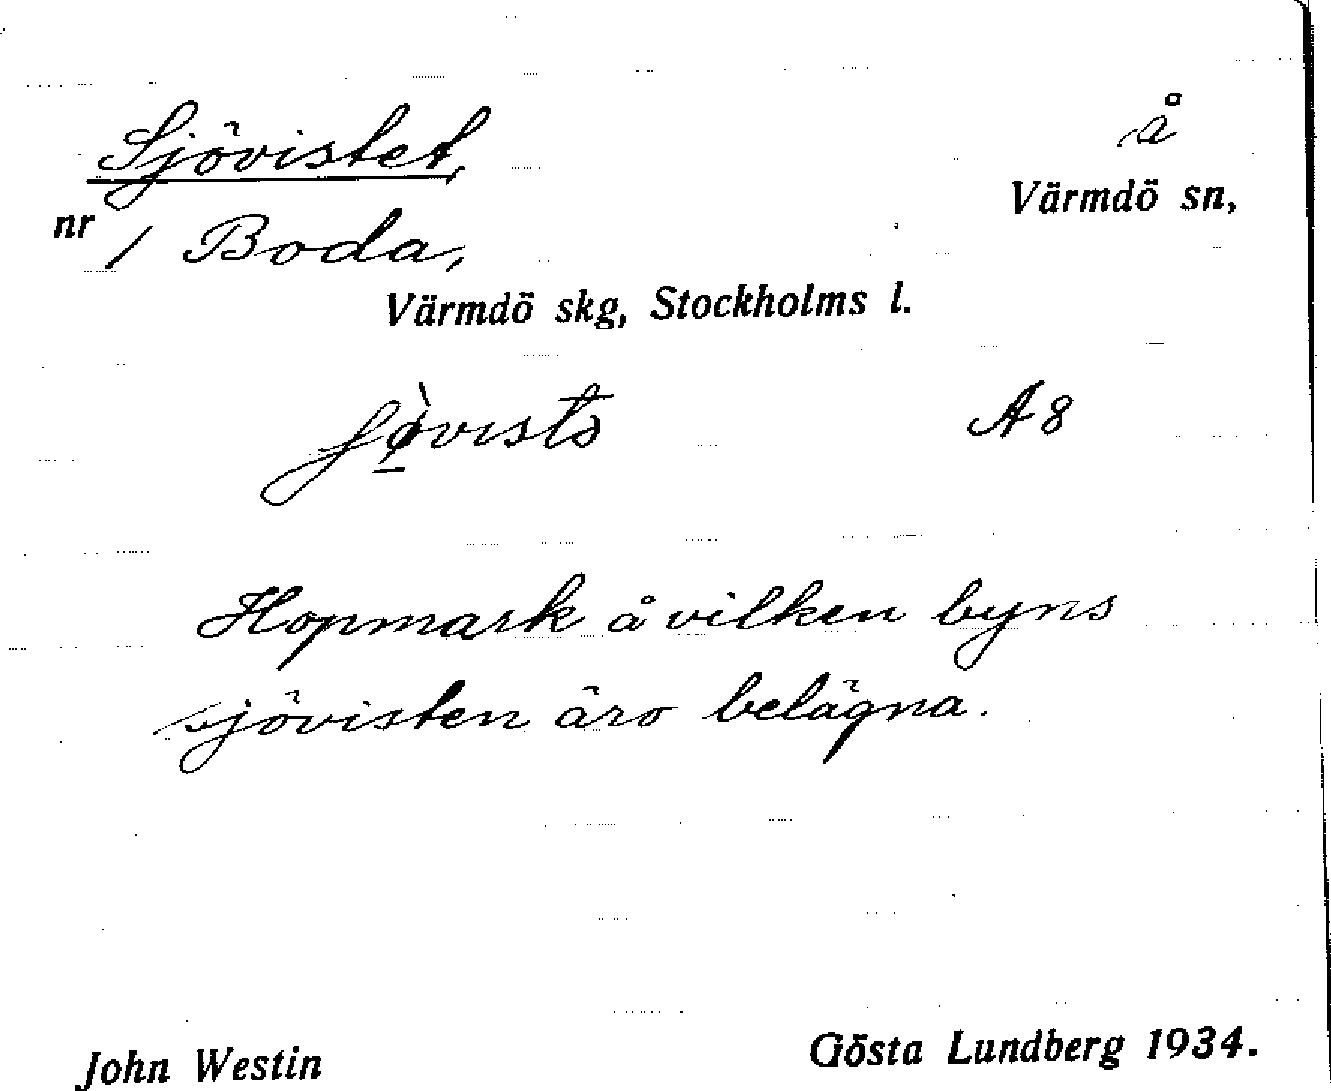 Sjövistet, å
Värmdö sn,
nr 1 Boda,
Värmdö skg, Stockholms l.
A 8
Hopmark å vilken byns
sjövisten äro belägna.
John Westin Gösta Lundberg 1934.